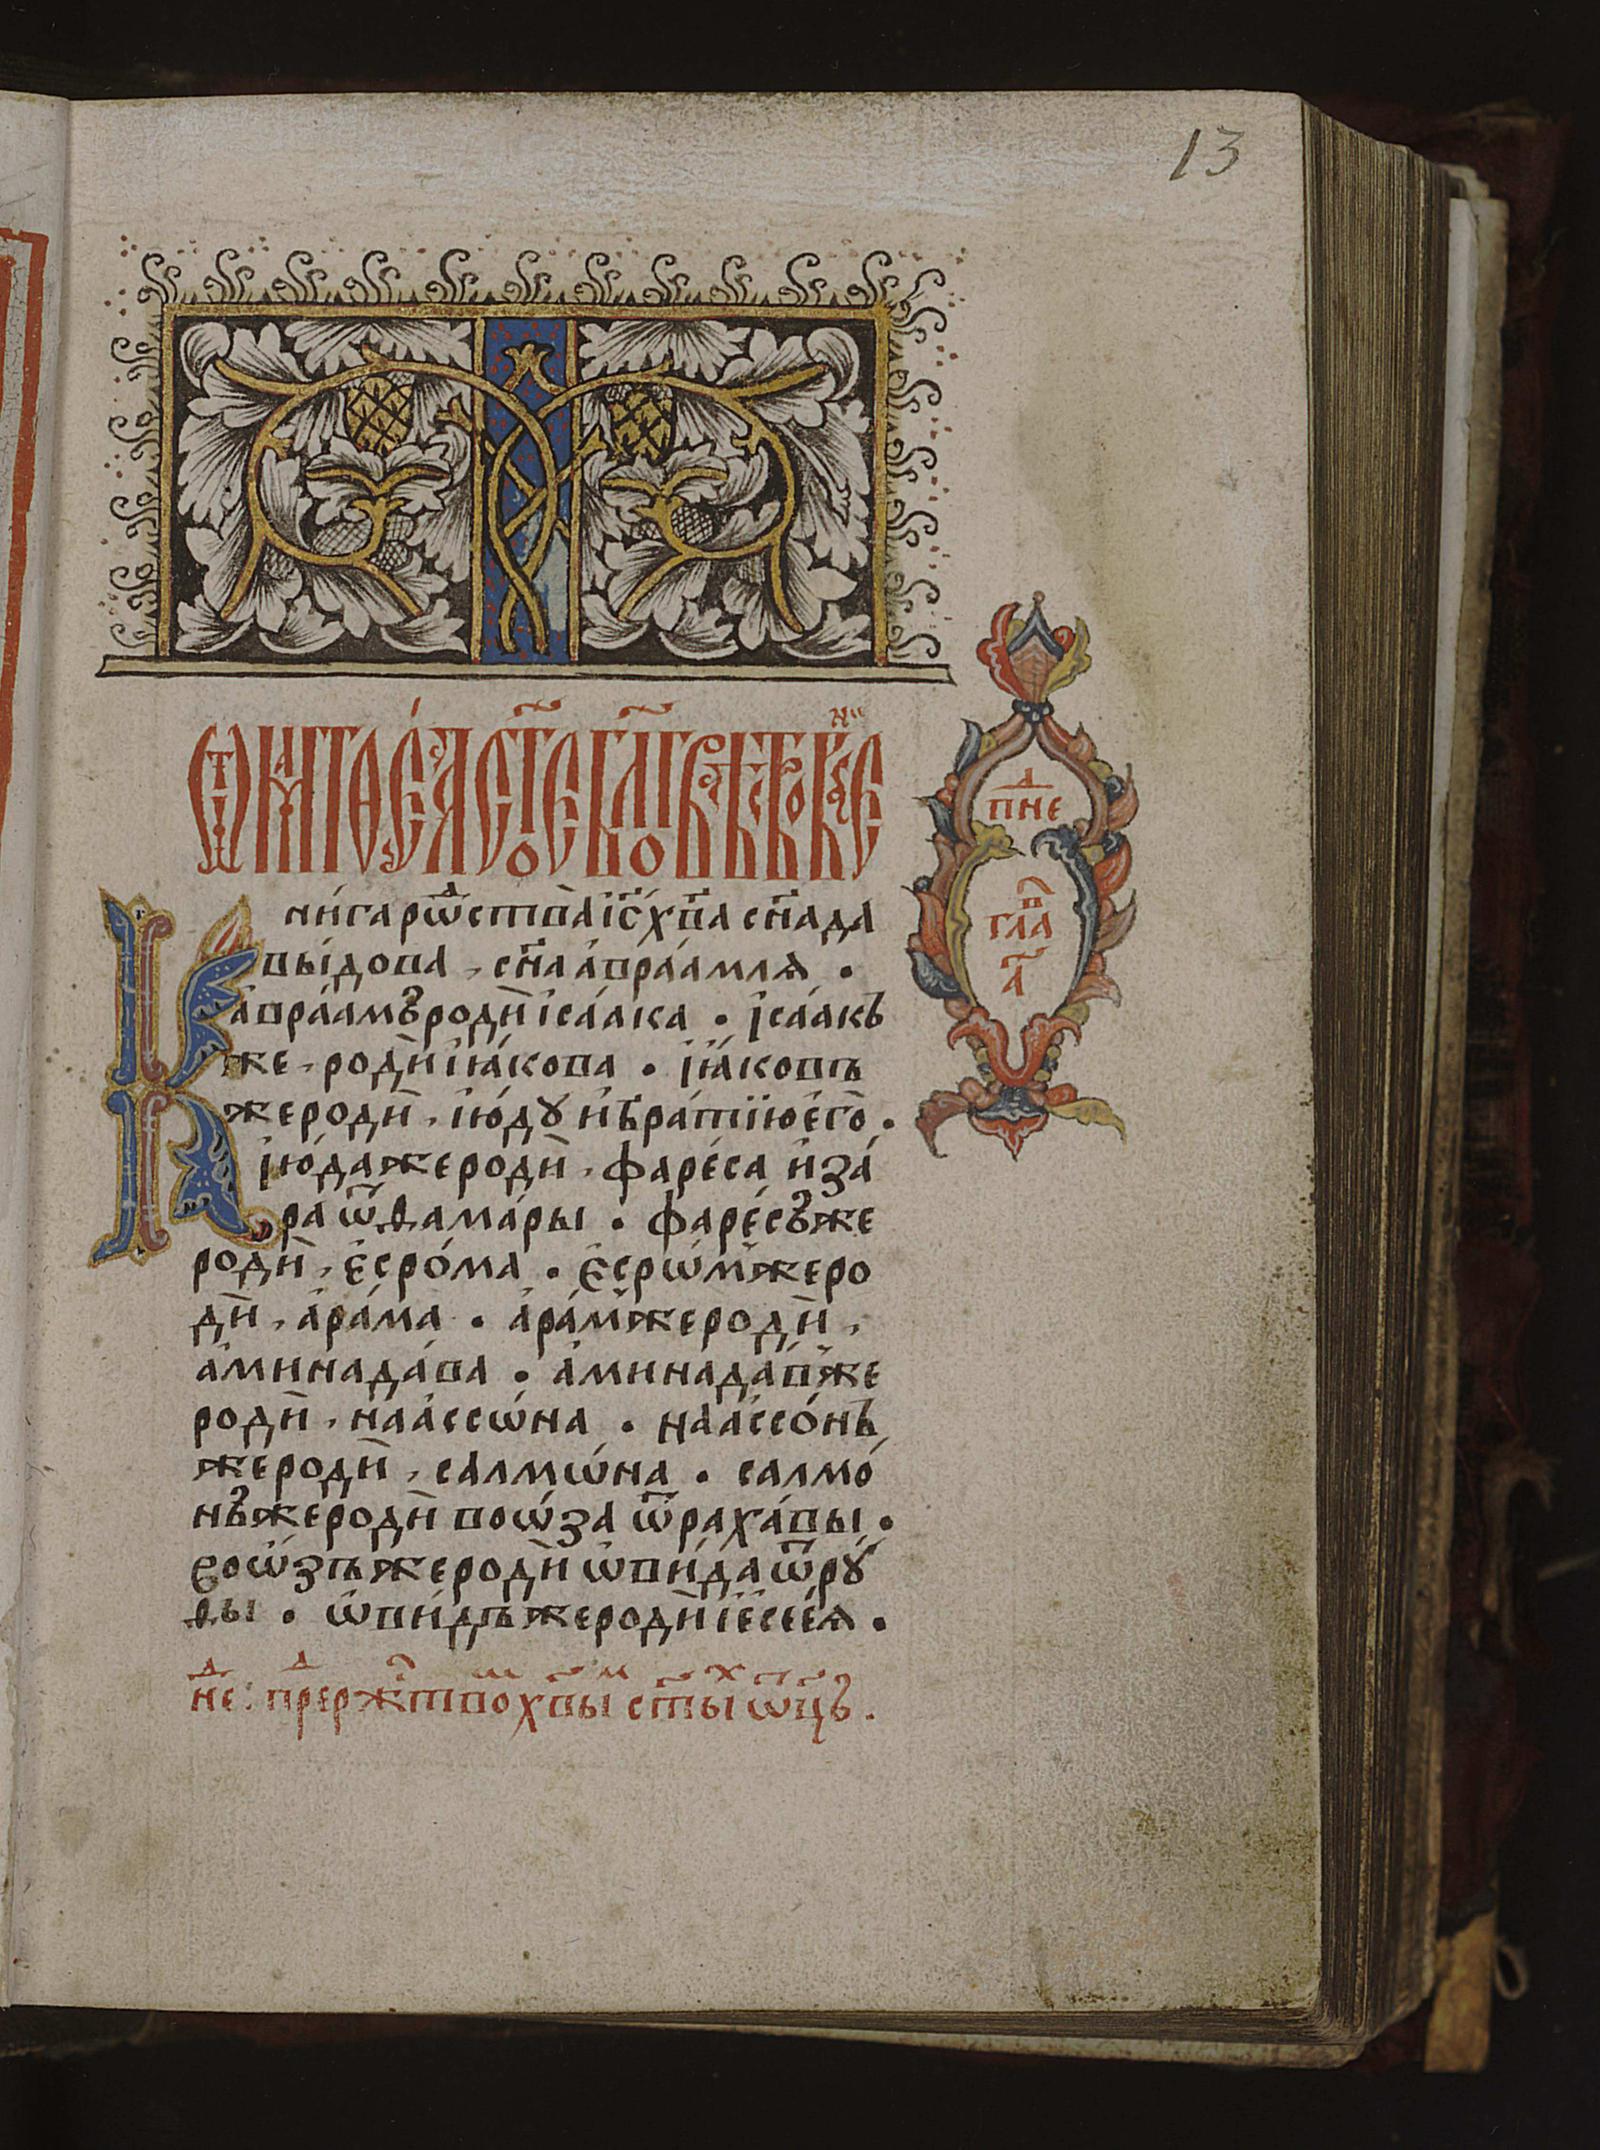 13
Ѿ маѳе́а ст҃ое бл҃говѣствованїе
д
пн҃е
в
гла
а҃
Кни́га рѡⷤства і҃с х҃ва сн҃а да
вы́дова , сн҃а а҆враа́млѧ .
а҆враа́мъ роди̇̀ і҆саа́ка . І҆саа́къ
же , роди̇̀ і҆а́кова . І҆а́ковъ
же роди̇̀ , і҆ю́дꙋ и҆ бра́тїю є҆го̀ .
І҆ю́да же роди̇̀ , фаре́са и҆ за́
ра ѿ ѳама́ры . фаре́съ же
роди̇̀ , є҆сро́ма . є҆срѡ́м же ро
ди̇̀ , а҆ра́ма . а҆ра́м же роди̇̀ ,
а҆минада́ва . а҆минада́в же
роди̇̀ , наассѡ́на . наассо́нъ
же роди̇̀ , салмѡ́на . салмо́
нъ же роди̇̀ воѡ́за ѿ раха́вы .
воѡ́зъ же роди̇̀ ѡ҆ви́да ѿ рꙋ́
ѳы . ѡ҆ви́дъ же роди̇̀ і҆есе́ѧ .
неⷣ: преⷣ ржⷭ҇твоⷨ хв҃ыⷨ ст҃ыⷯ ѿц҃ъ .